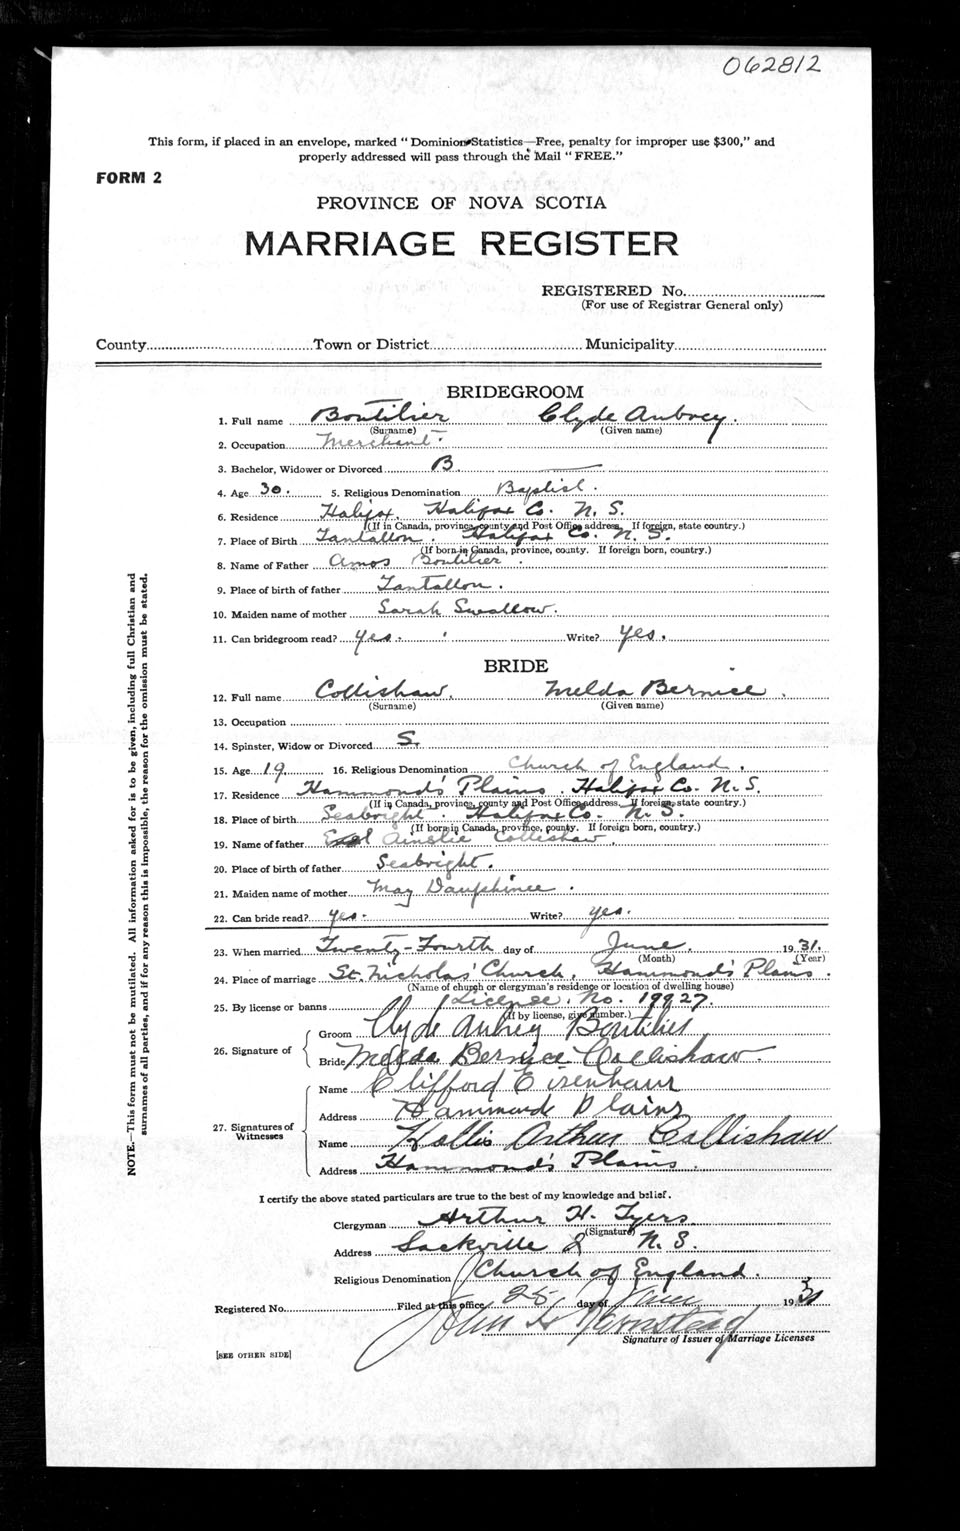 062812
This form, if placed in an envelope, marked "Dominion Statistics—Free, penalty for improper use $300," and
properly addressed will pass through the Mail "FREE."
FORM 2
PROVINCE OF NOVA SCOTIA
MARRIAGE REGISTER
REGISTERED No.
(For use of Registrar General only)
County Town or District Municipality
BRIDEGROOM
1. Full name Boutilier Clyde Aubrey.
(Surname) (Given name)
2. Occupation Merchant.
3. Bachelor, Widower or Divorced B
4. Age 30. 5. Religious Denomination Baptist.
6. Residence Halifax, Halifax Co. N. S.
(If in Canada, province, county and Post Office address. If foreign, state country.)
7. Place of Birth Tantallon. Halifax Co. N. S.
(If born in Canada, province, county. If foreign born, country.)
8. Name of Father Amos Boutilier.
9. Place of birth of father Tantallon.
10. Maiden name of mother Sarah Swallow.
11. Can bridegroom read? yes. Write? yes.
BRIDE
12. Full name Collishaw, Melda Bernice.
(Surname) (Given name)
13. Occupation
14. Spinster, Widow or Divorced S.
15. Age 19 16. Religious Denomination Church of England.
17. Residence Hammonds' Plains, Halifax Co. N. S.
(If in Canada, province, county and Post Office address. If foreign, state country.)
18. Place of birth Seabright. Halifax Co. N. S.
(If born in Canada, province, county. If foreign born, country.)
19. Name of father Ainslie Collishaw.
20. Place of birth of father Seabright.
21. Maiden name of mother May Dauphinee.
22. Can bride read? yes. Write? yes.
23. When married Twenty-Fourth day of June, 1931.
(Month) (Year)
24. Place of marriage St. Nicholas' Church, Hammond's Plains.
(Name of church or clergyman's residence or location of dwelling house)
25. By license or banns License, No. 19927.
(If by license, give number.)
26. Signature of
Groom Clyde Aubrey Boutilier
Bride Melda Bernice Collishaw.
27. Signatures of Witnesses
Name Clifford Eisenhaur
Address Hammonds Plains
Name Hollis Arthur Collishaw
Address Hammond's Plains.
I certify the above stated particulars are true to the best of my knowledge and belief.
Clergyman Arthur H. Tyers
(Signature)
Address Sackville N. S.
Religious Denomination Church of England.
Registered No. Filed at this office 25 day of June 1931
John H
Signature of Issuer of Marriage Licenses
[SEE OTHER SIDE]
NOTE.—This form must not be mutilated. All information asked for is to be given, including full Christian and
surnames of all parties, and if for any reason this is impossible, the reason for the omission must be stated.